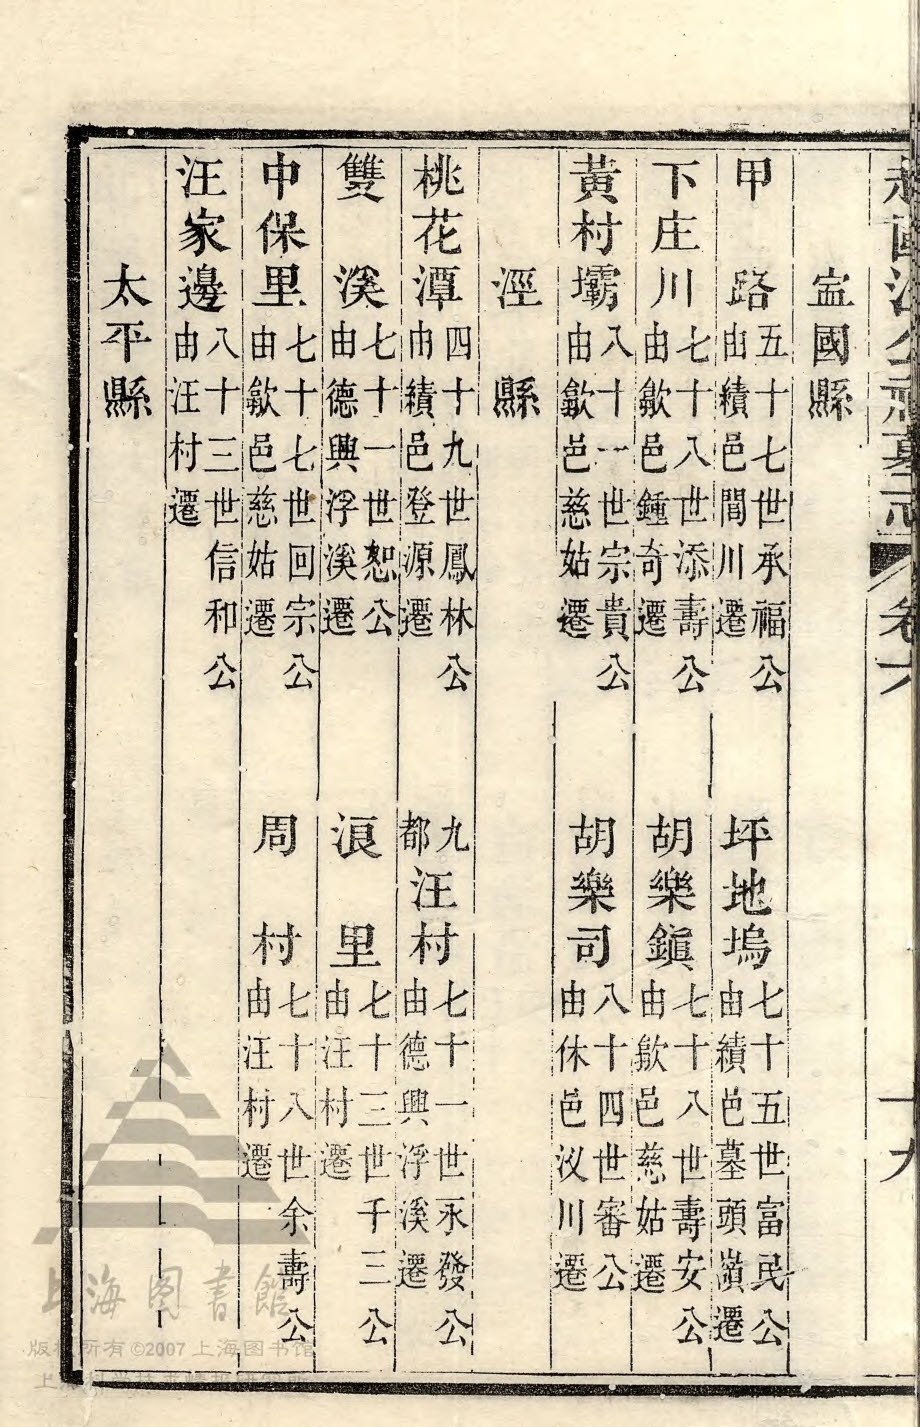 越國汪公祠墓志 卷六 十九
寍國縣
甲路 五十七世承福公由績邑閒川遷 坪地塢 七十五世富民公由績邑墓頭嶺遷
下庄川 七十八世添壽公由歙邑鍾奇遷 胡樂鎭 七十八世壽安公由歙邑慈姑遷
黃村壩 八十一世宗貴公由歙邑慈姑遷 胡樂司 八十四世審公由休邑汊川遷
涇縣
桃花潭 四十九世鳳林公由績邑登源遷 九都汪村 七十一世永發公由德興浮溪遷
雙溪 七十一世恕公由德興浮溪遷 浪里 七十三世千三公由汪村遷
中保里 七十七世回宗公由歙邑慈姑遷 周村 七十八世余壽公由汪村遷
汪家邊 八十三世信和公由汪村遷
太平縣
上海图書館
版权所有©2007 上海图书馆